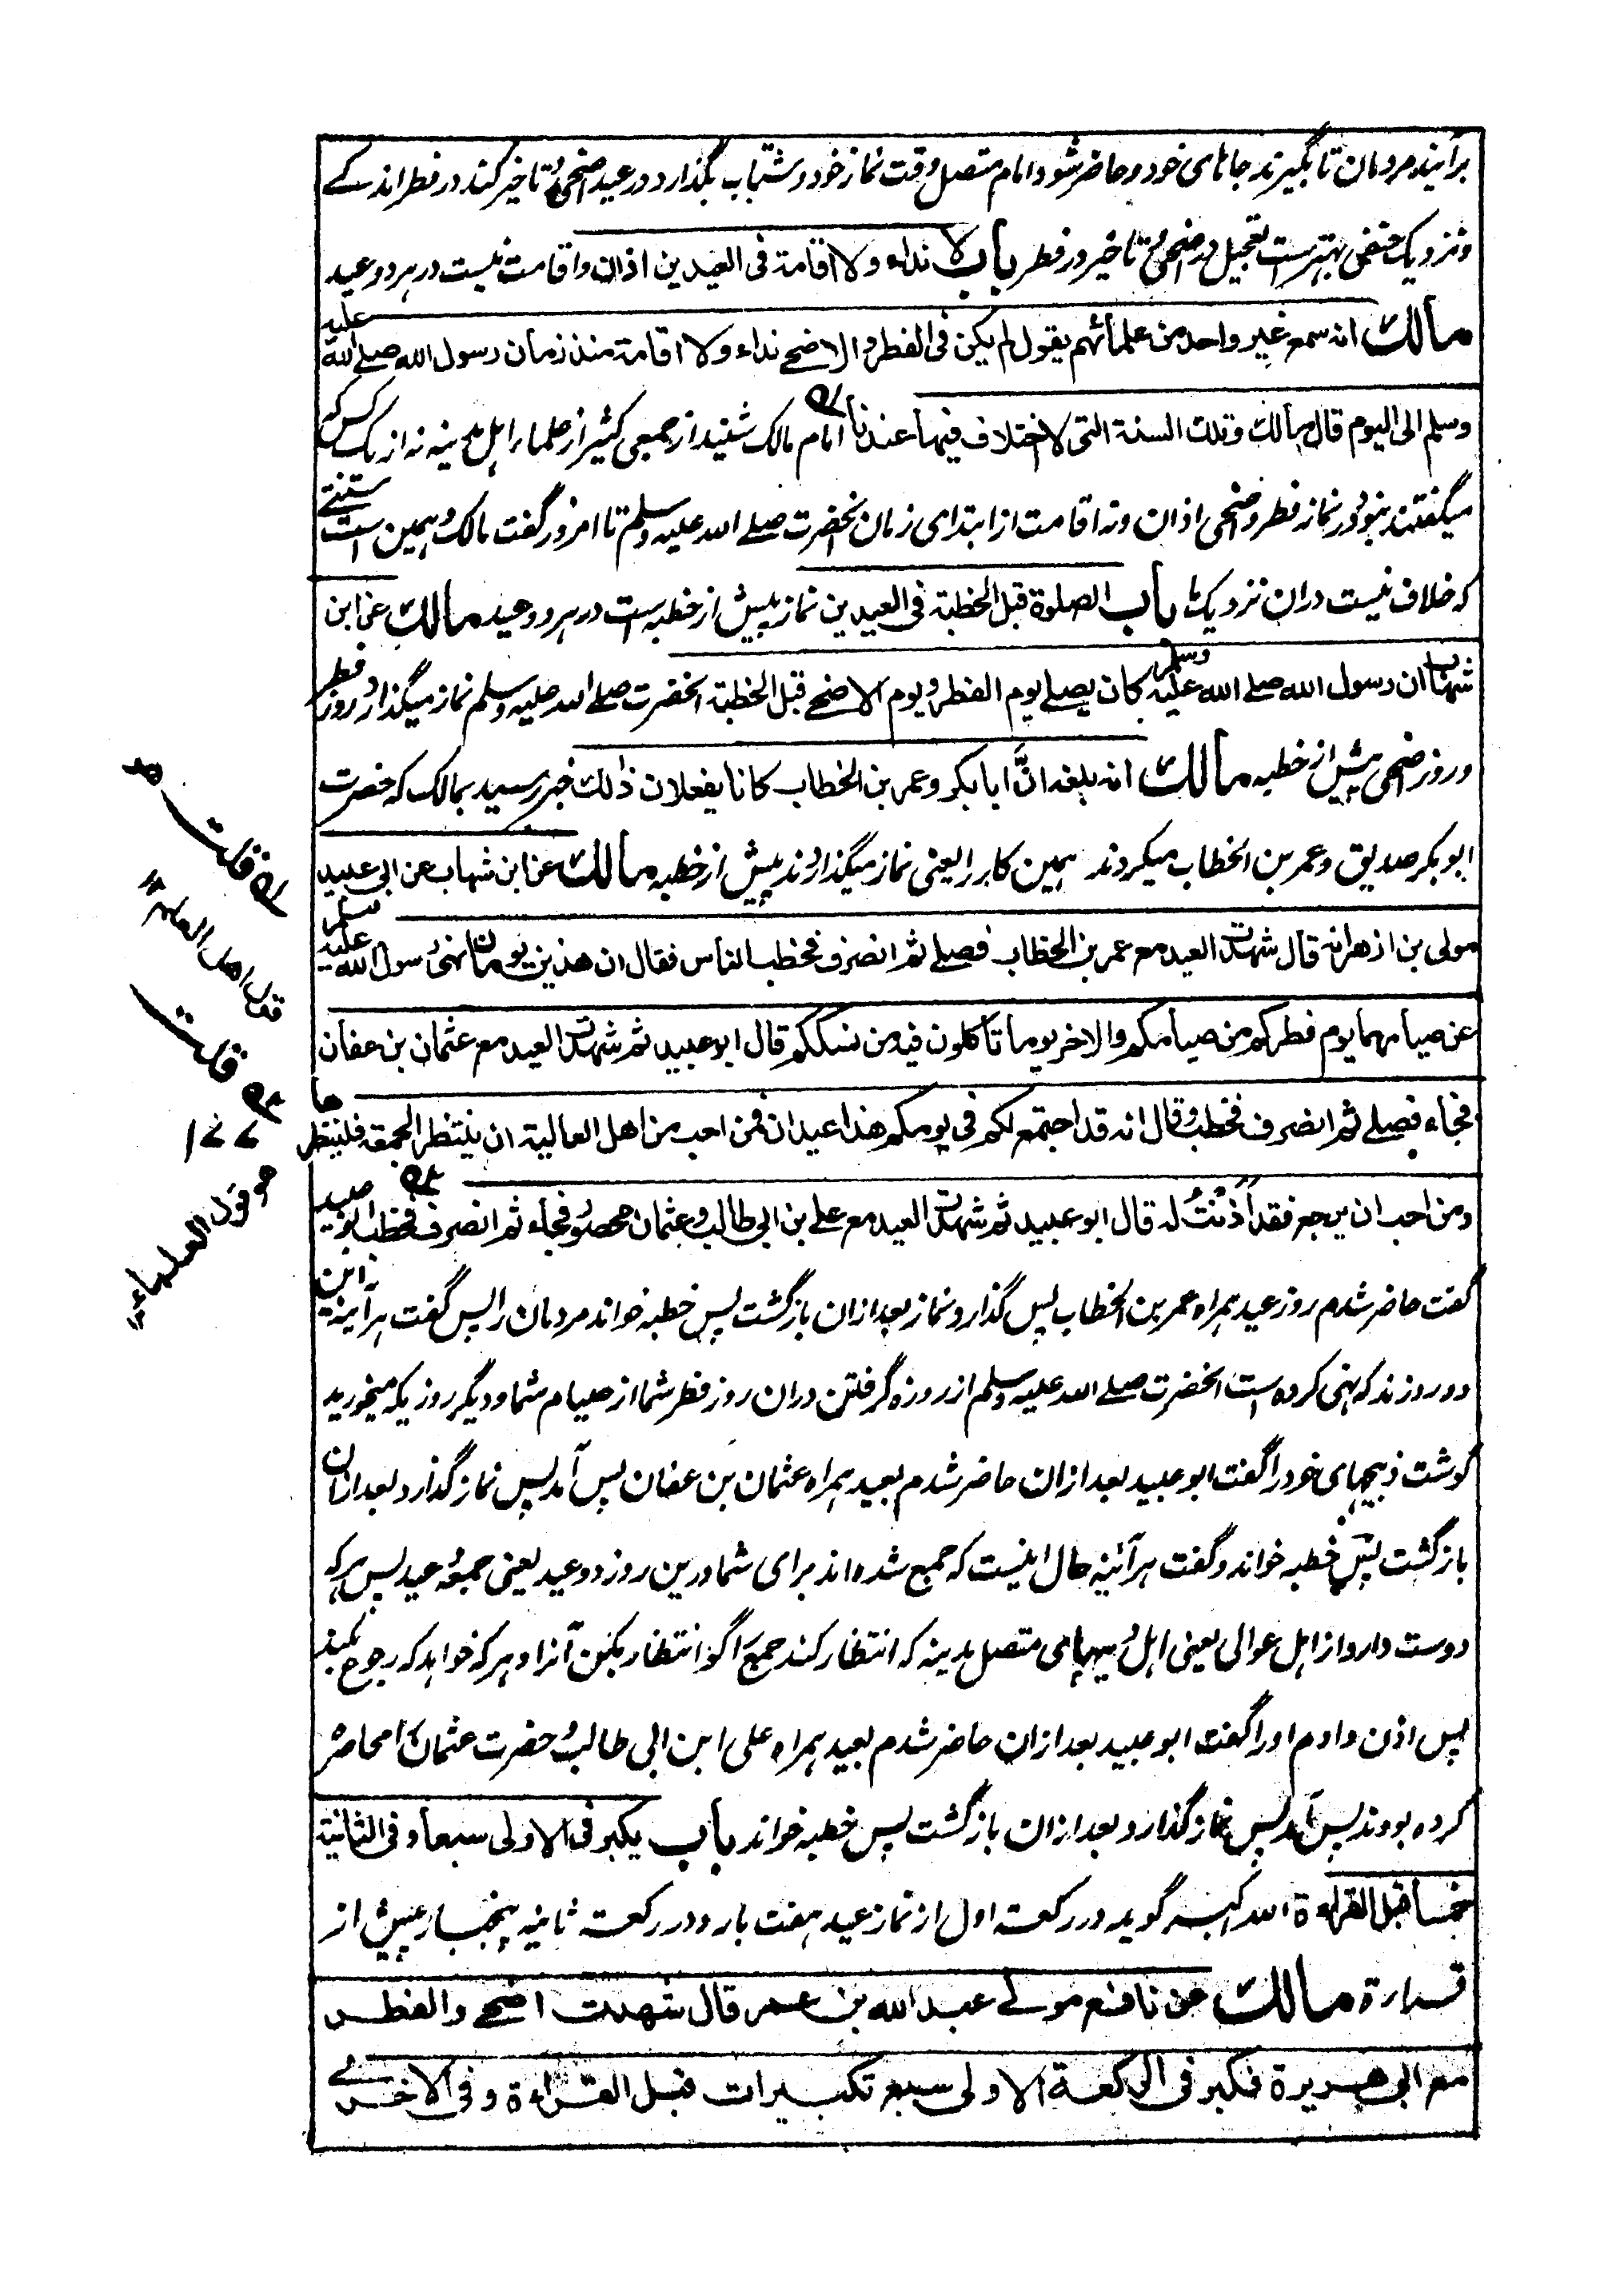 برآیند مردمان تا بگیرند جاهای خود و حاضر شود امام متصل وقت نماز خود و شتاب بگذارد در عید اضحی و تاخیر کند در فطر اندکے
و نزدیک حنفی بهتر ست تعجیل در اضحی و تاخیر در فطر باب لا نداء ولا اقامة فی العیدین اذان و اقامت نیست در هر دو عید
مالك انه سمع غیر واحد من علمائهم یقول لم یکن فی الفطر و الاضحے نداء ولا اقامة منذ زمان رسول الله صلے الله علیه
وسلم الی الیوم قال مالك وتلك السنة التی لا اختلاف فیها عندنا امام مالک شنید از جمعی کثیر از علماء اہل مدینہ نہ از یک کس کہ
میگفتند نبود در نماز فطر و اضحی اذان و نه اقامت از ابتدای زمان آنحضرت صلے الله علیه وسلم تا امروز گفت مالک و ہمین است سنتے
که خلاف نیست دران نزدیک ما باب الصلوة قبل الخطبة فی العیدین نماز پیش از خطبه ست در هر دو عید مالك عن ابن
شهاب ان رسول الله صلے الله علیه وسلم کان یصلے یوم الفطر و یوم الاضحے قبل الخطبة آنحضرت صلے الله علیه وسلم نماز میگذارد روز فطر
و روز اضحی پیش از خطبه مالك انه بلغه انّ ابا بکر و عمر بن الخطاب کانا یفعلان ذلك خبر رسید بمالک که حضرت
ابو بکر صدیق و عمر بن الخطاب میکردند ہمین کار را یعنی نماز میگذاردند پیش از خطبه مالك عن ابن شهاب عن ابی عبید
مولی بن ازهر انه قال شهدت العید مع عمر بن الخطاب فصلے ثم انصرف فخطب الناس فقال ان هذین یومان نهی رسول الله علیه سلم
عن صیامهما یوم فطرکم من صیامکم والاخر یوما تأکلون فیه من نسککم قال ابو عبید ثم شهدت العید مع عثمان بن عفان
فجاء فصلے ثم انصرف فخطب وقال انه قد اجتمع لکم فی یومکم هذا عیدان فمن احب من اهل العالیة ان ینتظر الجمعة فلینتظرها
ومن احب ان یرجع فقد اَذِنْتُ له قال ابو عبید ثم شهدت العید مع علے بن ابی طالب و عثمان محصور فجاء ثم انصرف فخطب ابو عبید
گفت حاضر شدم روز عید ہمراہ عمر بن الخطاب پس گذارد نماز بعد ازان بازگشت پس خطبه خواند مردمان را پس گفت هر آینه این
دو روزند که نهی کرده است آنحضرت صلے الله علیه وسلم از روزه گرفتن دران روز فطر شما از صیام شما و دیگر روزیکه میخورید
گوشت ذبیحهای خود را گفت ابو عبید بعد ازان حاضر شدم بعید ہمراہ عثمان بن عفان پس آمد پس نماز گذارد بعد ازان
بازگشت پس خطبه خواند و گفت هر آئینه حال اینست که جمع شده اند برای شما درین روز دو عید یعنی جمعه و عید پس ہر که
دوست دارد از اہل عوالی یعنی اہل دیہہای متصل مدینه که انتظار کند جمعه را گو انتظار بکن آنرا و هر که خواهد که رجوع کند
پس اذن دادم او را گفت ابو عبید بعد ازان حاضر شدم بعید ہمراہ علی ابن ابی طالب و حضرت عثمان را محاصره
کرده بودند پس آمد پس نماز گذارد و بعد ازان بازگشت پس خطبه خواند باب یکبر فی الاولی سبعا و فی الثانیة
خمسا قبل القراءة الله اکبر گوید در رکعت اول از نماز عید هفت بار و در رکعت ثانیه پنجبار پیش از
قراءة مالك عن نافع مولے عبد الله بن عمر قال شهدت اضحے والفطر
مع ابی هریرة فکبر فی الرکعة الاولی سبع تکبیرات قبل القراءة و فی الاخرے
قلت
قول اهل العلم ۱۲
قلت
هو قول العلماء ۱۲